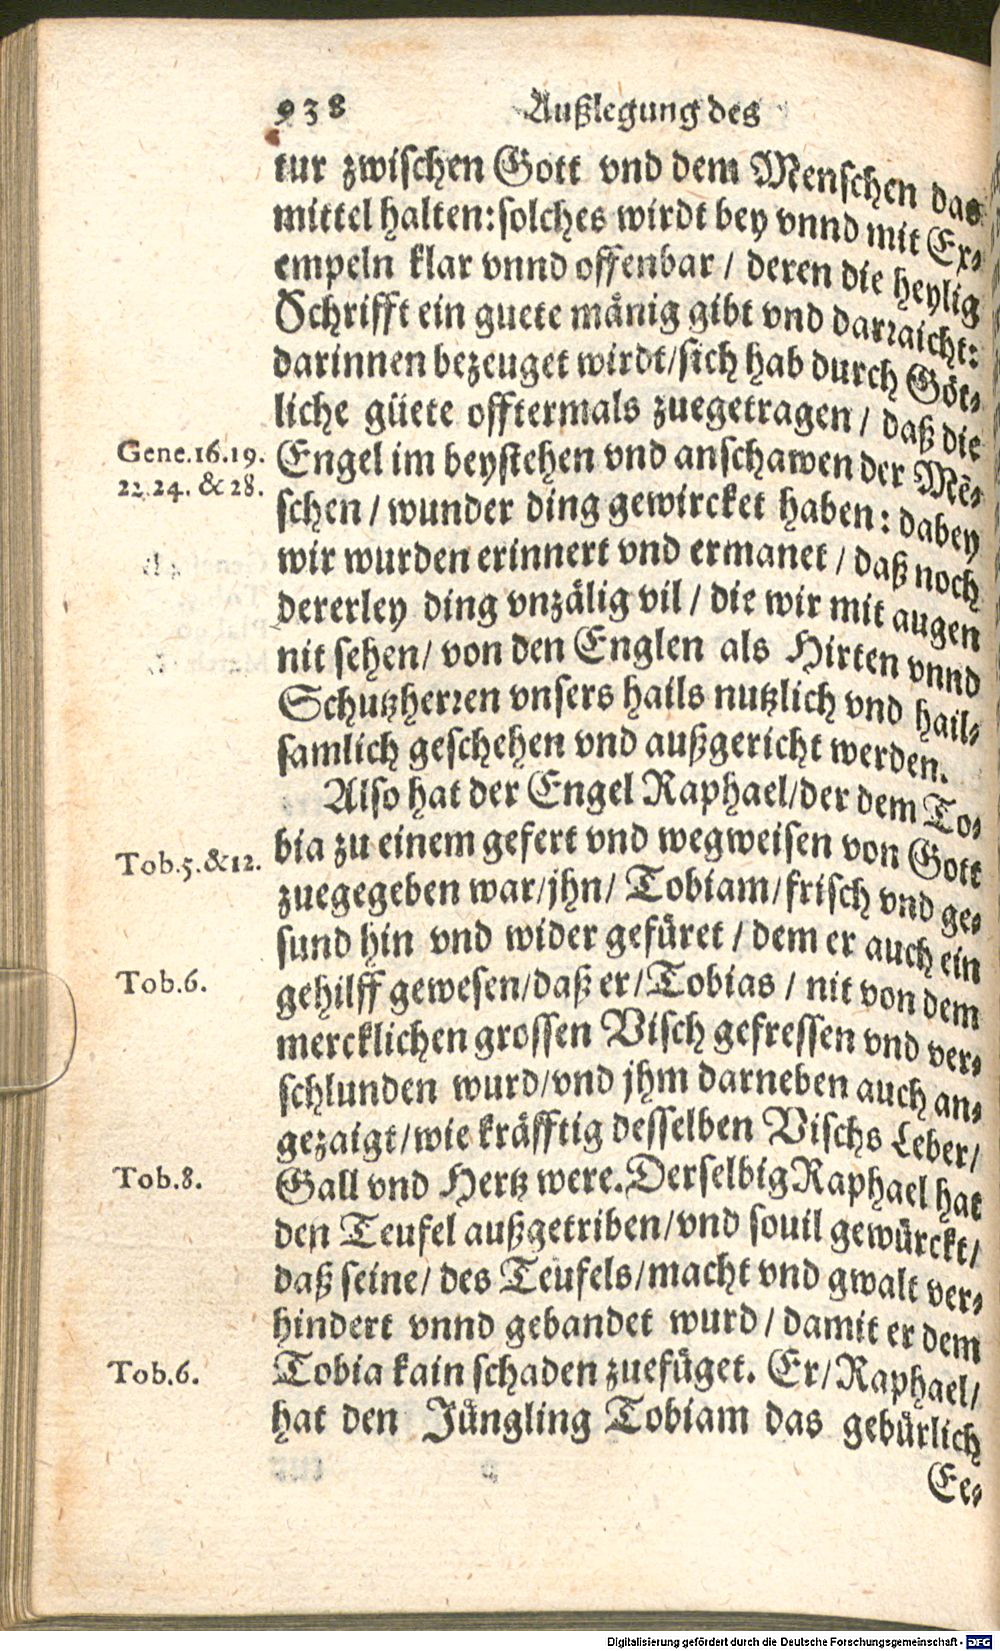 938 Außlegung des
tur zwischen Gott vnd dem Menschen das
mittel halten: solches wirdt bey vnnd mit Ex-
empeln klar vnnd offenbar / deren die heylig
Schrifft ein guete mänig gibt vnd darraicht:
darinnen bezeuget wirdt/sich hab durch Göt-
liche güete offtermals zuegetragen / daß die
Gene.16.19. Engel im beystehen vnd anschawen der Mẽ-
22.24. & 28. schen / wunder ding gewircket haben: dabey
wir wurden erinnert vnd ermanet / daß noch
dererley ding vnzälig vil / die wir mit augen
nit sehen/ von den Englen als Hirten vnnd
Schutzherren vnsers hails nutzlich vnd hail-
samlich geschehen vnd außgericht werden.
Also hat der Engel Raphael/der dem To-
Tob.5.&12. bia zu einem gefert vnd wegweisen von Gott
zuegegeben war/jhn/ Tobiam/frisch vnd ge-
sund hin vnd wider gefüret / dem er auch ein
Tob.6. gehilff gewesen/daß er/Tobias / nit von dem
mercklichen grossen Visch gefressen vnd ver-
schlunden wurd/vnd jhm darneben auch an-
gezaigt/wie kräfftig desselben Vischs Leber/
Tob.8. Gall vnd Hertz were. Derselbig Raphael hat
den Teufel außgetriben/vnd souil gewürckt/
daß seine/ des Teufels/macht vnd gwalt ver-
hindert vnnd gebandet wurd / damit er dem
Tob.6. Tobia kain schaden zuefüget. Er/Raphael/
hat den Jüngling Tobiam das gebürlich
Ee-
Digitalisierung gefördert durch die Deutsche Forschungsgemeinschaft - DFG